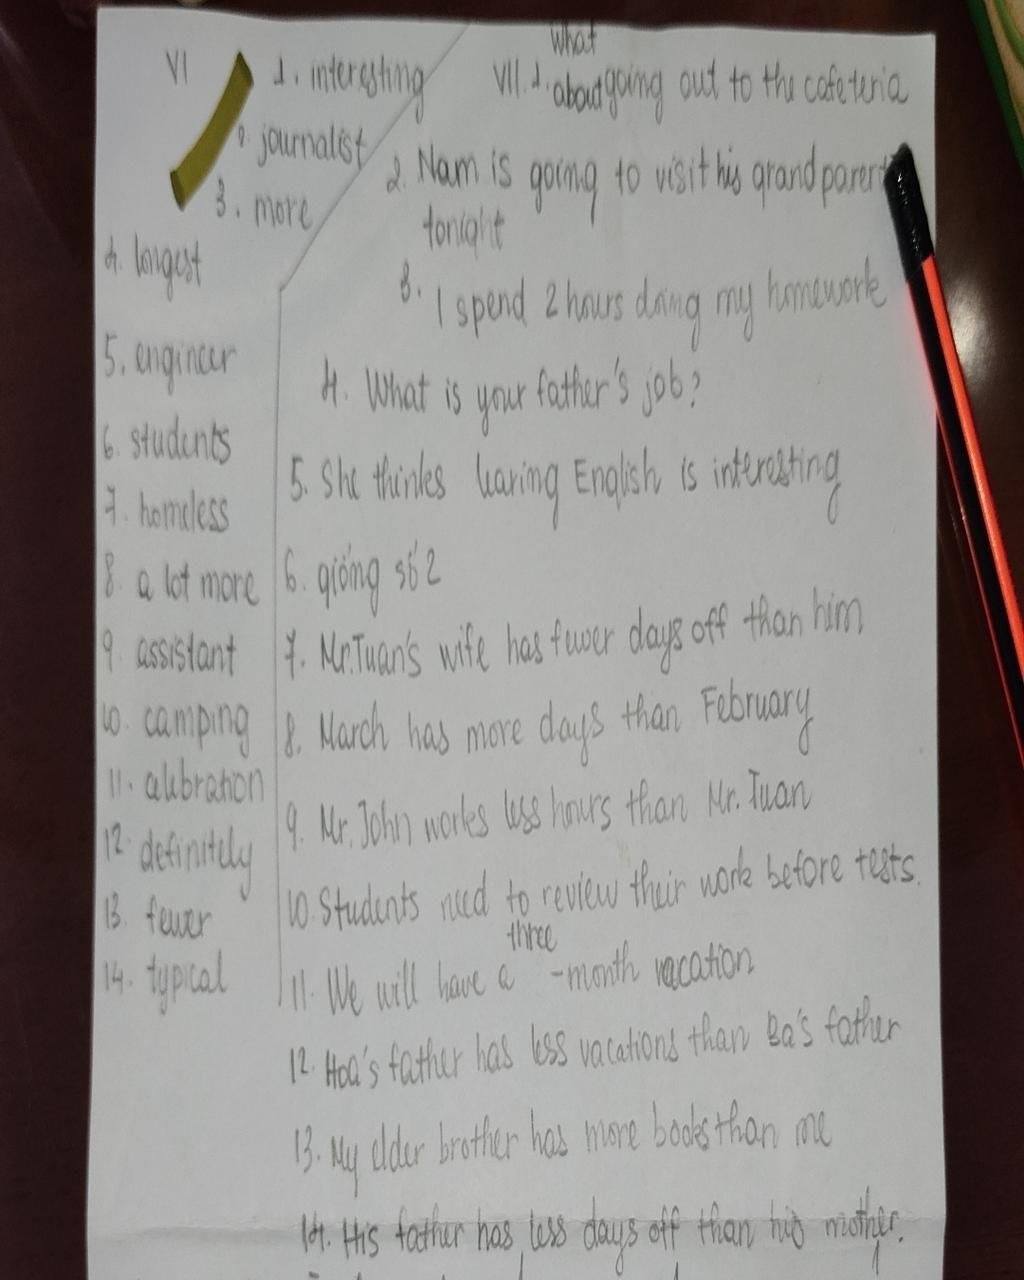 VI
1. interesting
2. journalist
3. more
4. longest
5. engineer
6. students
7. homeless
8. a lot more
9. assistant
10. camping
11. celebration
12. definitely
13. fewer
14. typical
VII. 1. What about going out to the cafeteria
2. Nam is going to visit his grandparent
tonight
3. I spend 2 hours doing my homework
4. What is your father's job?
5. She thinks learing English is interesting
6. giống số 2
7. Mr.Tuan's wife has fewer days off than him
8. March has more days than February
9. Mr. John works less hours than Mr. Tuan
10. Students need to review their work before tests.
11. We will have a three-month vacation
12. Hoa's father has less vacations than Ba's father
13. My elder brother has more books than me
14. His father has less days off than his mother.